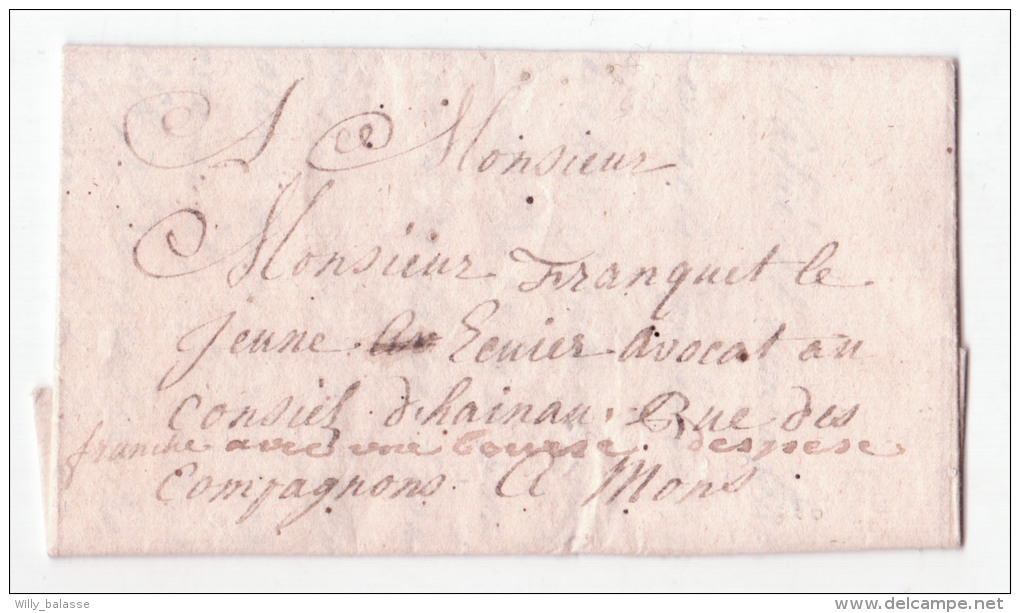 A Monsieur
Monsieur Franquet le
Jeune Ecuier avocat au
Consiel d'hainau. Rue des
franche avec une bourse. despese
Compagnons. A Mons
Willy_balasse
www.delcampe.net